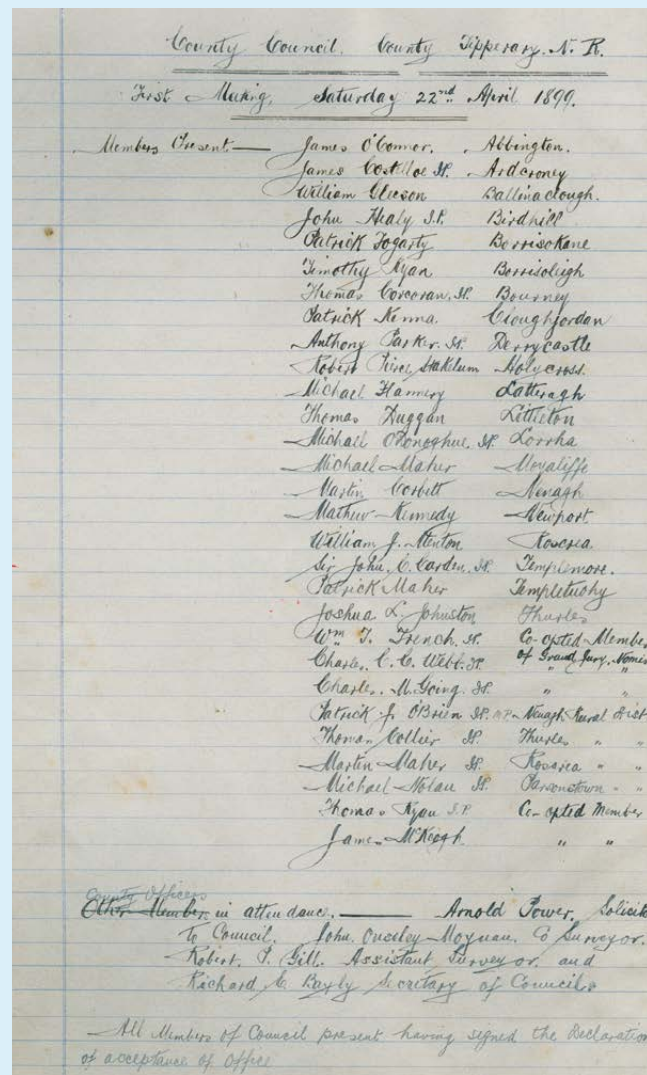 County Council. County Tipperary. N. R.
First Meeting, Saturday 22nd April 1899.
Members Present — James O'Connor. Abbington.
James Costelloe J.P. Ardcroney
William Gleeson Ballinaclough.
John Healy J.P. Birdhill
Patrick Fogarty Borrisokane
Timothy Ryan Borrisoleigh
Thomas Corcoran. J.P. Bourney
Patrick Kenna. Cloughjordan
Anthony Parker. J.P. Derrycastle
Robert Pierce Stakelum Holycross.
Michael Flannery Latteragh
Thomas Duggan Littleton
Michael O'Donoghue. J.P. Lorrha
Michael Maher Moyaliffe
Martin Corbett Nenagh
Mathew Kennedy Newport.
William J. Menton Roscrea.
Sir John. C. Carden. J.P. Templemore.
Patrick Maher Templetuohy
Joshua. L. Johnston Thurles
Wm T. Trench. J.P. Co-opted Member
Charles. C. C. Webb. J.P. of Grand Jury. Nenagh
Charles. M. Going. J.P. " "
Patrick J. O'Brien J.P. M.P. Nenagh Rural Dist
Thomas Collier J.P. Thurles " "
Martin Maher J.P. Roscrea " "
Michael Nolan J.P. Parsonstown " "
Thomas Ryan J.P. Co-opted Member
James McKeogh. " "
County Officers
Other Member in attendance. — Arnold Power. Solicit
to Council. John. Ousley Moynan. Co Surveyor.
Robert. P. Gill. Assistant Surveyor. and
Richard C. Secretary of Council.
All Members of Council present having signed the Declaration
of acceptance of Office